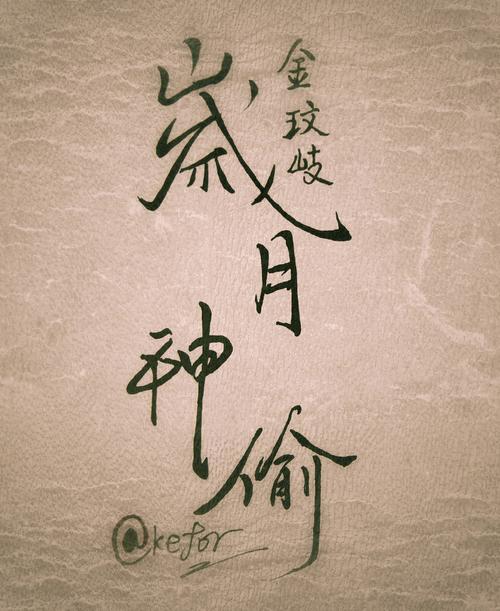 歲月神偷
金玟岐
@kefor